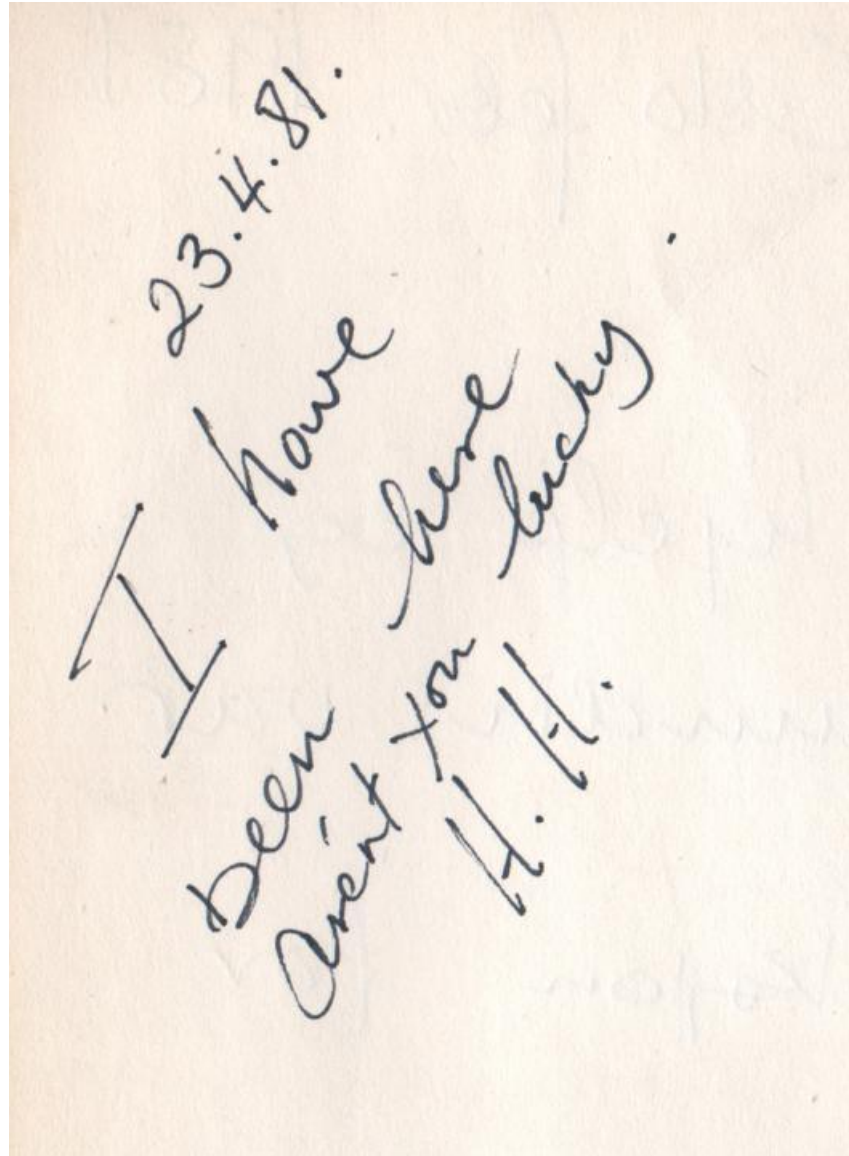 23.4.81.
I have
been here
aren't you lucky.
H.H.